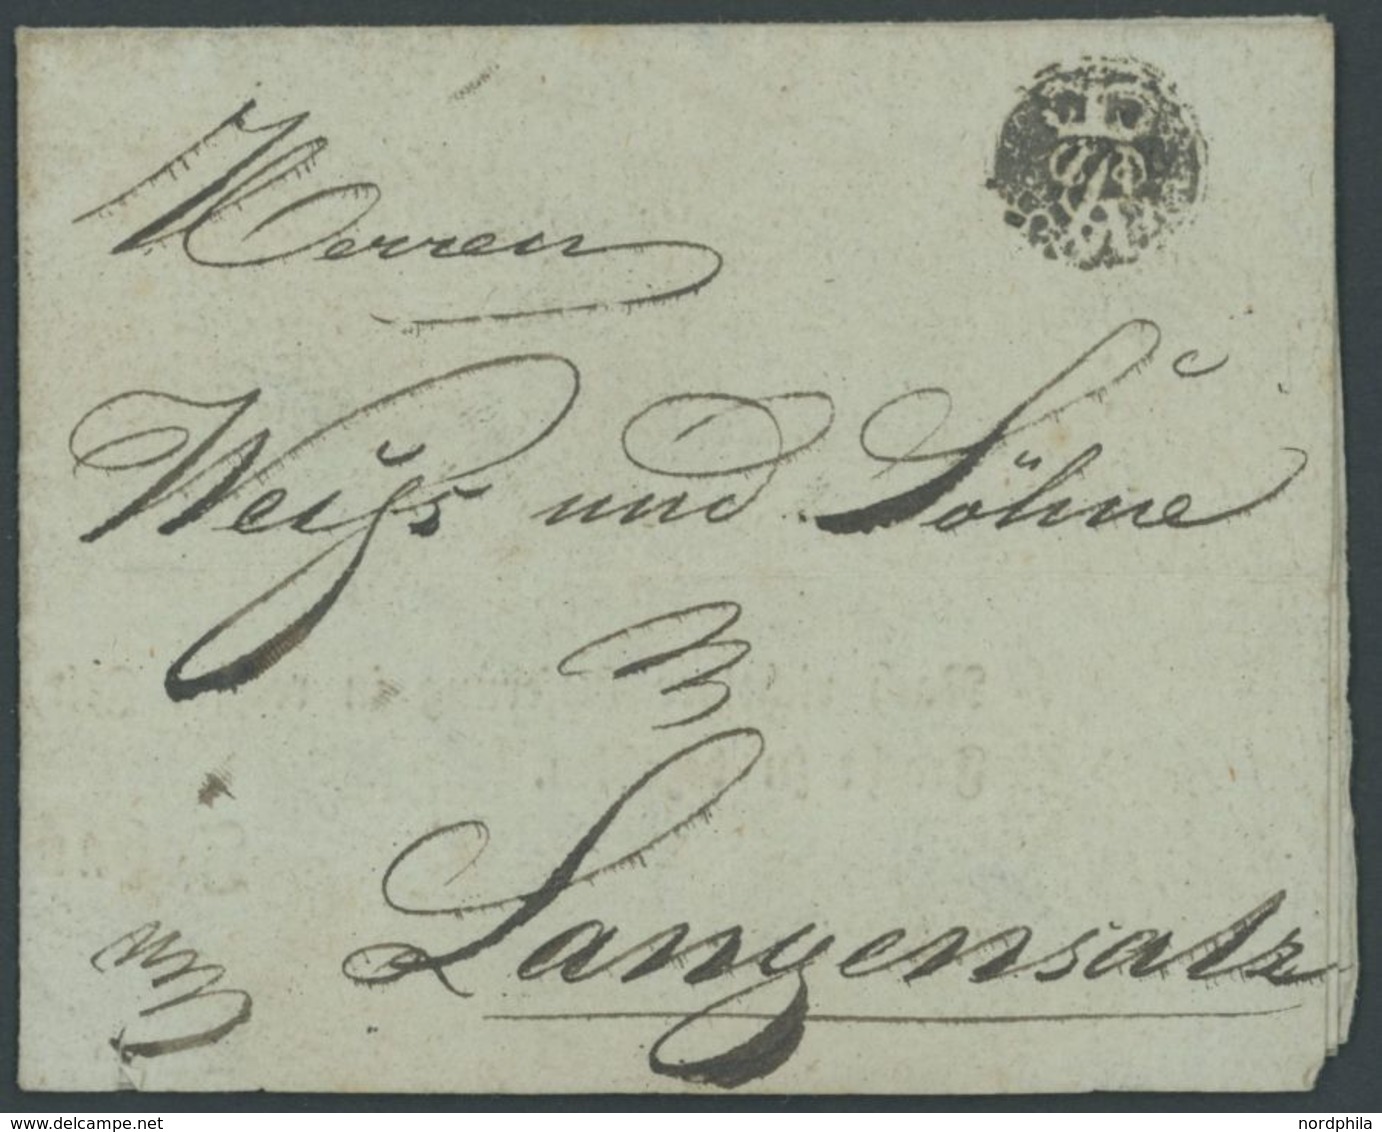 Herren
Weiss und Söhne
Langensalz
www.delcampe.net
nordphila